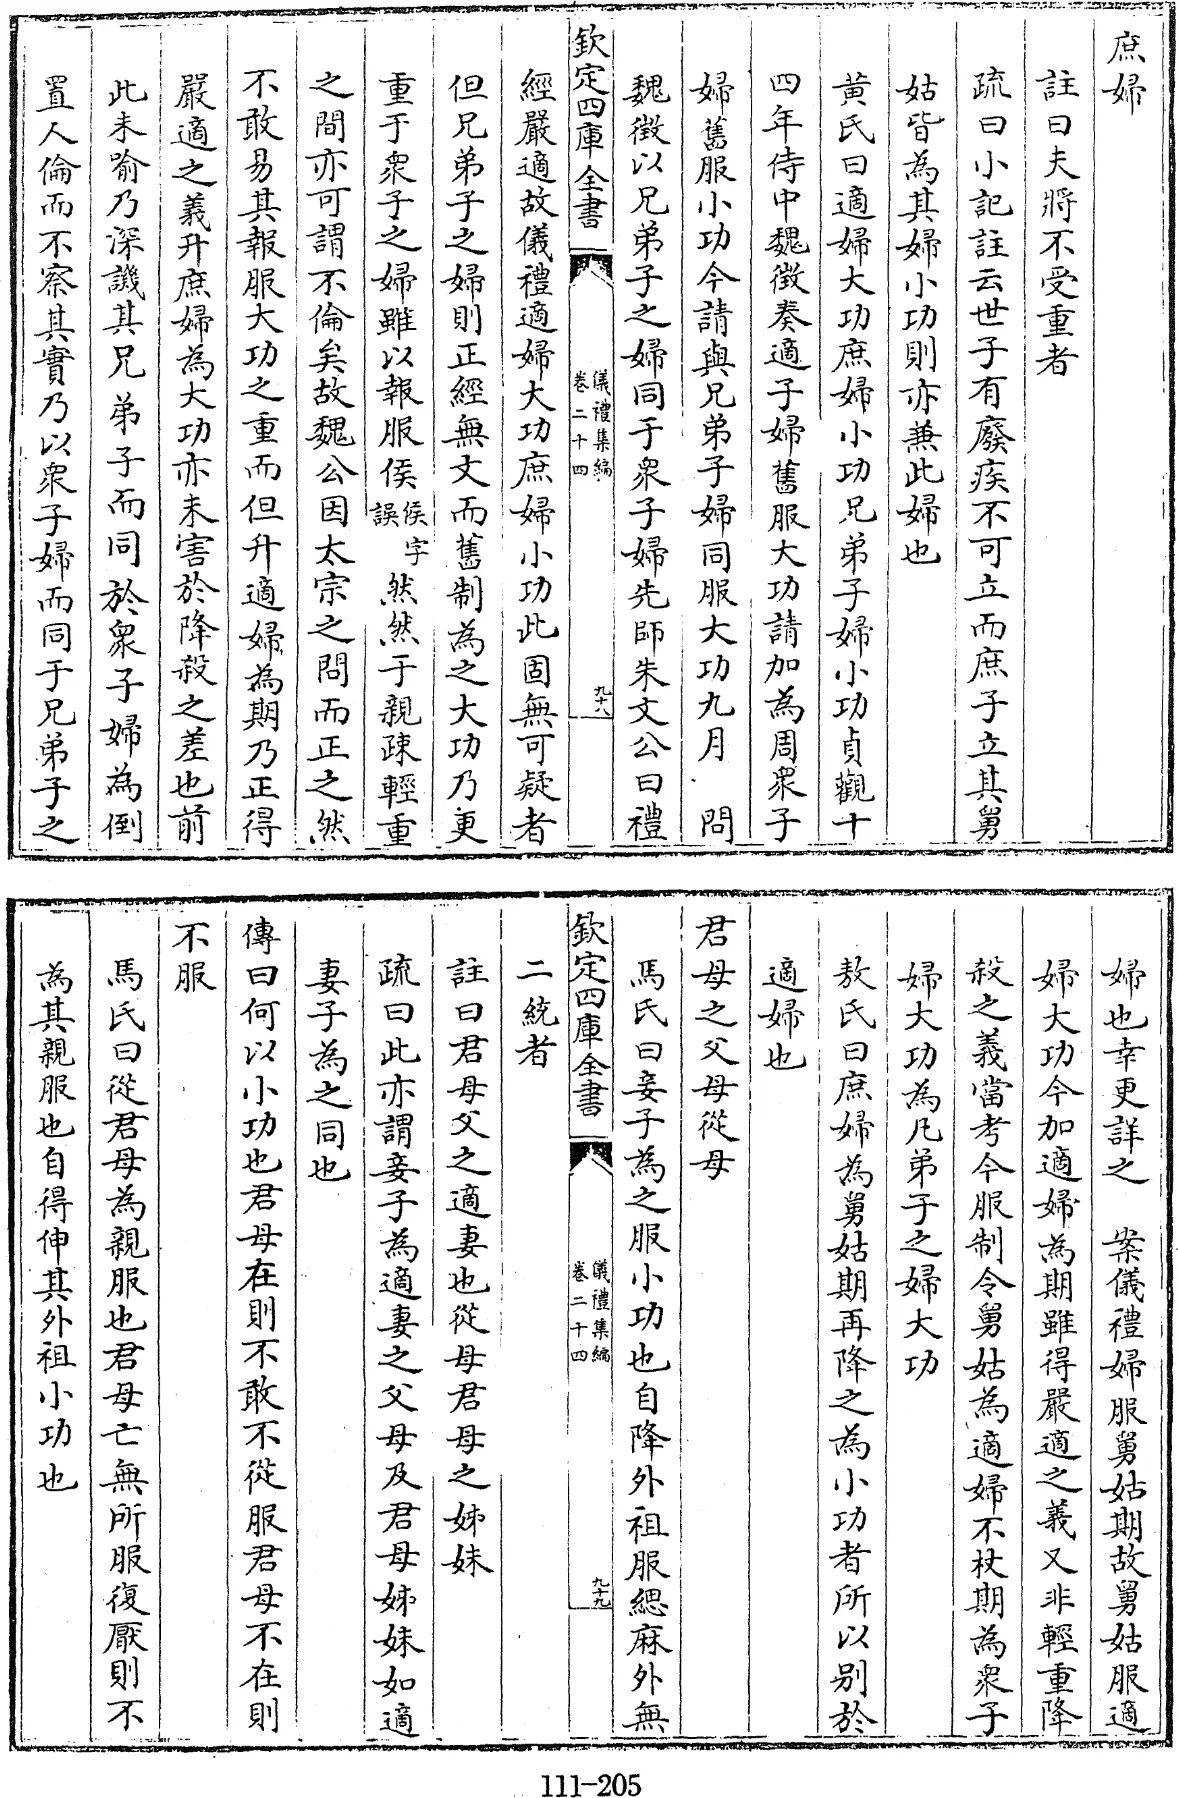 庶婦
註曰夫將不受重者
疏曰小記註云世子有廢疾不可立而庶子立其舅
姑皆為其婦小功則亦兼此婦也
黄氏曰適婦大功庶婦小功兄弟子婦小功貞觀十
四年侍中魏徵奏適子婦舊服大功請加為周衆子
婦舊服小功今請與兄弟子婦同服大功九月　問
魏徵以兄弟子之婦同于衆子婦先師朱文公曰禮
欽定四庫全書
儀禮集編
卷二十四
九十八
經嚴適故儀禮適婦大功庶婦小功此固無可疑者
但兄弟子之婦則正經無文而舊制為之大功乃更
重于衆子之婦雖以報服侯侯字誤然然于親疎輕重
之間亦可謂不倫矣故魏公因太宗之問而正之然
不敢易其報服大功之重而但升適婦為期乃正得
嚴適之義升庶婦為大功亦未害於降殺之差也前
此未喻乃深譏其兄弟子而同於衆子婦為倒
置人倫而不察其實乃以衆子婦而同于兄弟子之
婦也幸更詳之　案儀禮婦服舅姑期故舅姑服適
婦大功今加適婦為期雖得嚴適之義又非輕重降
殺之義當考今服制令舅姑為適婦不杖期為衆子
婦大功為凡弟子之婦大功
敖氏曰庶婦為舅姑期再降之為小功者所以别於
適婦也
君母之父母從母
馬氏曰妾子為之服小功也自降外祖服緦麻外無
欽定四庫全書
儀禮集編
卷二十四
九十九
二統者
註曰君母父之適妻也從母君母之姊妹
疏曰此亦謂妾子為適妻之父母及君母姊妹如適
妻子為之同也
傳曰何以小功也君母在則不敢不從服君母不在則
不服
馬氏曰從君母為親服也君母亡無所服復厭則不
為其親服也自得伸其外祖小功也
111-205